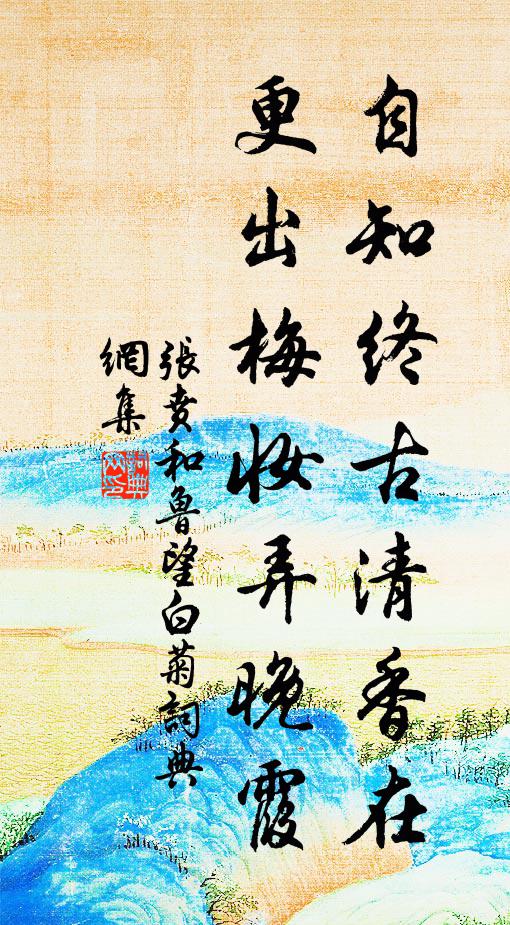 自知终古清香在
更出梅妆弄晚霞
張賁和魯望白菊詞典
網集
詞典